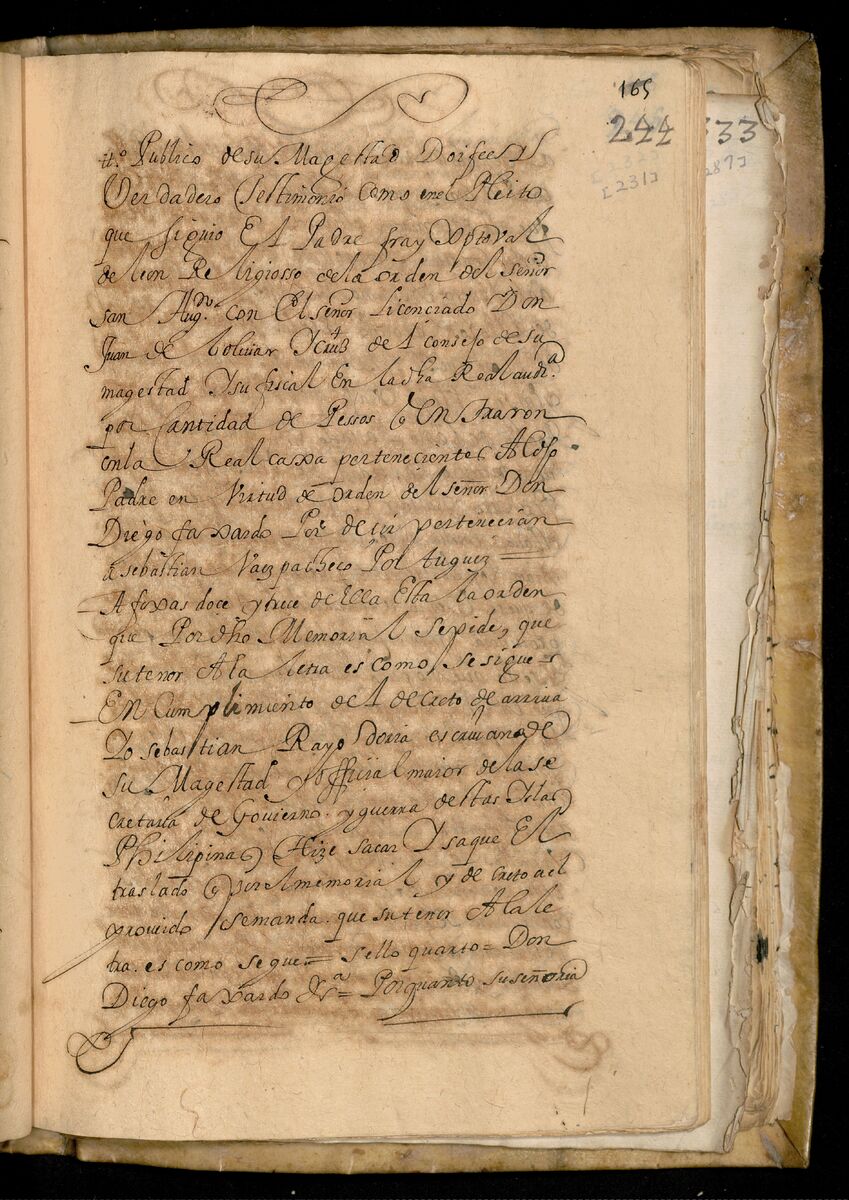 165
244
333
[232]
[231]
289]
itº Publico de su Magestad Doi fee Y
Verdadero testimonio como en el Pleito
que siguio El Padre fray Xptoval
de leon Religiosso de la orden del señor
san Augⁿ. con El señor Licenciado Don
Juan de Bolivar Y cruz del consejo de su
magestad Y su fiscal En la dha Real audiª
por Cantidad de Pessos q Entraron
en la Real caxa pertenecientes Al dho
Padre en Virtud de orden del señor Don
Diego faxardo Por decir pertenecian
a sebastian Vaez pacheco Portuguez =
A foxas doce y trece de Ella Esta la orden
que Por dho Memorial se pide, que
su tenor A la letra es como se sigue =
EN Cumplimiento del decreto de arriua
Yo sebastian Rayo doria escriuano de
su Magestad y offiçial maior de la se
cretaria de Govierno y guerra destas Yslas
Philipinas Hize sacar Y saque El
traslado q por el memorial y decreto a el
proueido se manda que su tenor A la le
tra. es como se gue = sello quarto = Don
Diego faxardo &rª = Por quanto su señoria